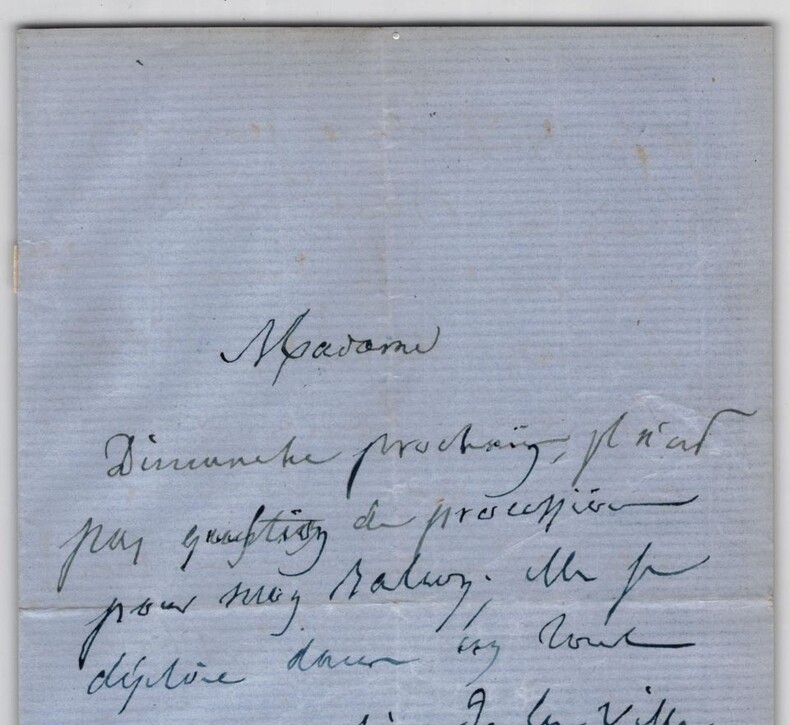 Madame
Dimanche prochain, il n'est
pas question de procession
pour mon balcon. Elle se
déploie dans un tout
de la Ville